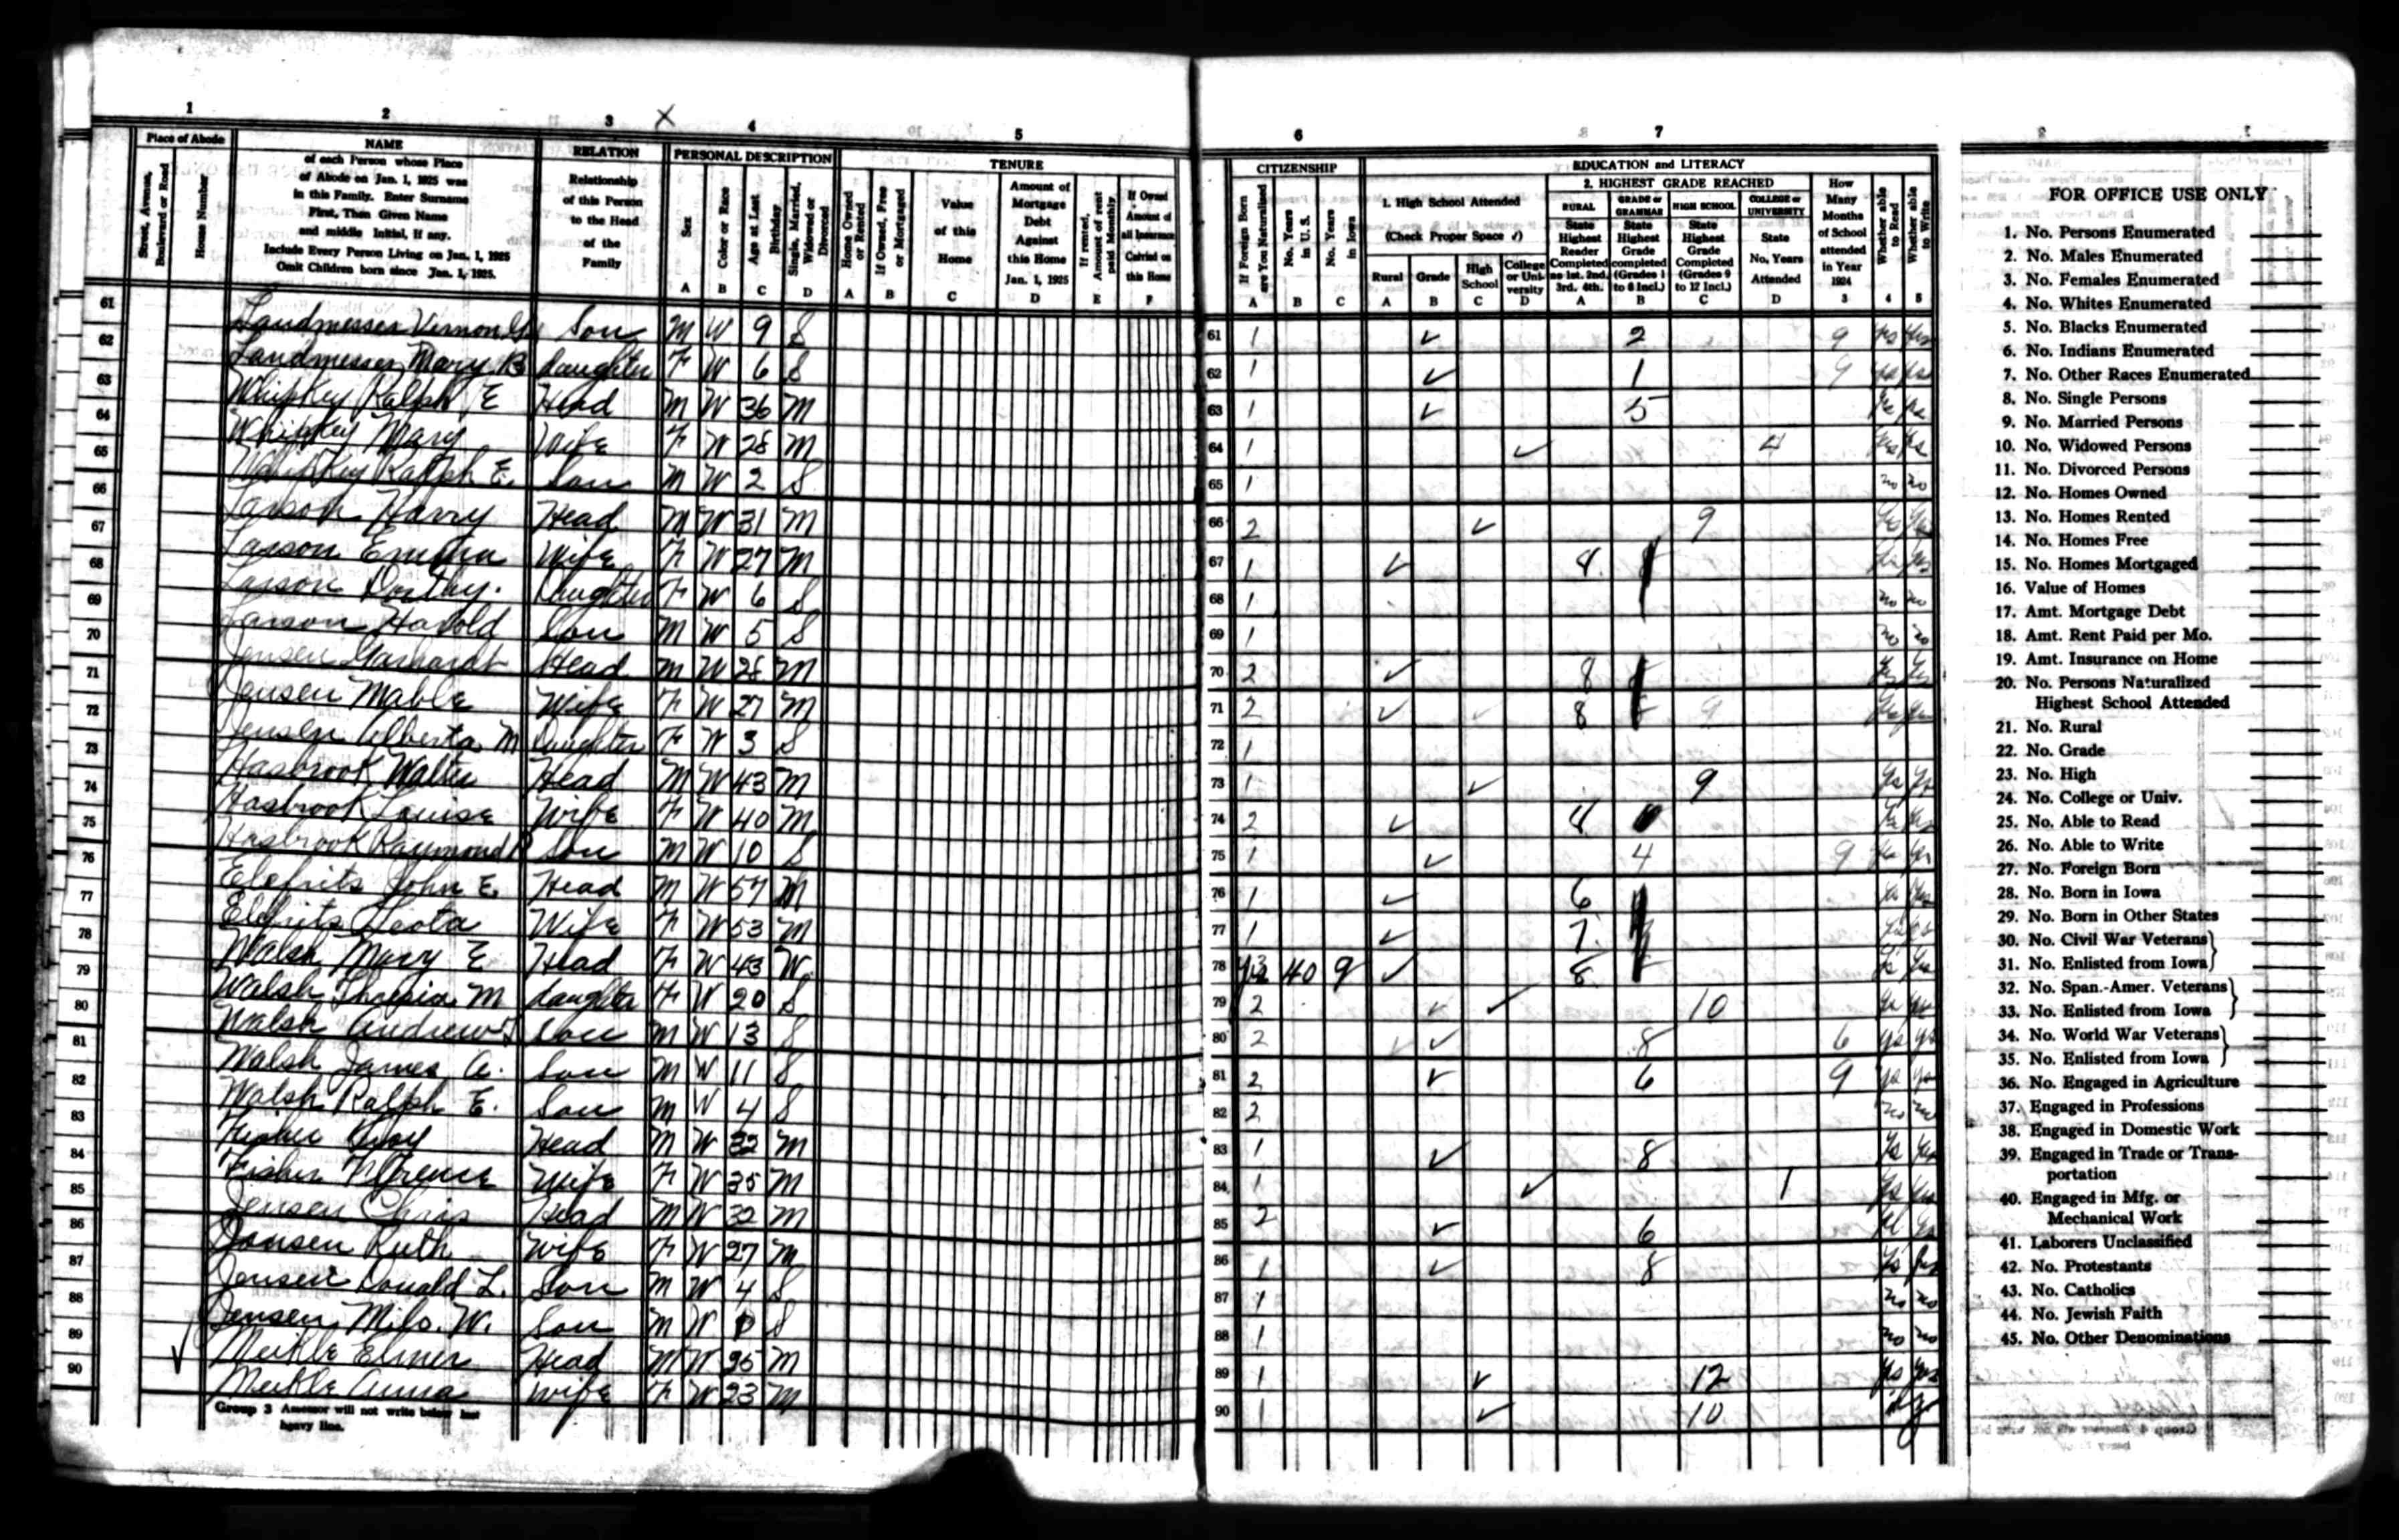 1 2 3 X 4 5
Place of Abode
Street, Avenue, Boulevard or Road
House Number
NAME
of each Person whose Place
of Abode on Jan. 1, 1925 was
in this Family. Enter Surname
First, Then Given Name
and middle Initial, if any.
Include Every Person Living on Jan. 1, 1925
Omit Children born since Jan. 1, 1925.
RELATION
Relationship
of this Person
to the Head
of the
Family
PERSONAL DESCRIPTION
Sex
Color or Race
Age at Last Birthday
Single, Married, Widowed or Divorced
A B C D
TENURE
Home Owned or Rented
If Owned, Free or Mortgaged
Value of this Home
Amount of Mortgage Debt Against this Home Jan. 1, 1925
If rented, Amount of rent paid Monthly
If Owned Amount of all Insurance Carried on this Home
A B C D E F
61 Landmesser Vernon G Son M W 9 S
62 Landmesser Mary B daughter F W 6 S
63 Whipkey Ralph E Head M W 36 M
64 Whipkey Mary Wife F W 28 M
65 Whipkey Ralph E. Son M W 2 S
66 Larson Harry Head M W 31 M
67 Larson Emma Wife F W 27 M
68 Larson Dorthy. Daughter F W 6 S
69 Larson Harold Son M W 5 S
70 Jensen Head M W 28 M
71 Jensen Mable Wife F W 27 M
72 Jensen Alberta M Daughter F W 3 S
73 Hasbrook Walter Head M W 43 M
74 Hasbrook Louise Wife F W 40 M
75 Hasbrook Raymond Son M W 10 S
76 Elefrits John E. Head M W 57 M
77 Elefrits Wife F W 53 M
78 Walsh Mary E Head F W 43 W
79 Walsh M daughter F W 20 S
80 Walsh Andrew Son M W 13 S
81 Walsh James A. Son M W 11 S
82 Walsh Ralph E. Son M W 4 S
83 Fisher Head M W 32 M
84 Fisher Florence Wife F W 35 M
85 Jensen Chris Head M W 32 M
86 Jensen Ruth Wife F W 27 M
87 Jensen Donald L. Son M W 4 S
88 Jensen Milo. W. Son M W S
89 Meikle Elmer Head M W 25 M
90 Meikle Anna Wife F W 23 M
Group 3 Assessor will not write below last
heavy line.
6 7
CITIZENSHIP
If Foreign Born are You Naturalized
No. Years in U. S.
No. Years in Iowa
A B C
EDUCATION and LITERACY
1. High School Attended
(Check Proper Space ✓)
Rural Grade High School College or University
A B C D
2. HIGHEST GRADE REACHED
RURAL
State Highest Reader Completed as 1st. 2nd. 3rd. 4th.
GRADE or GRAMMAR
State Highest Grade completed (Grades 1 to 8 Incl.)
HIGH SCHOOL
State Highest Grade Completed (Grades 9 to 12 Incl.)
COLLEGE or UNIVERSITY
State No. Years Attended
A B C D
How Many Months of School attended in Year 1924
3
Whether able to Read
4
Whether able to Write
5
61 1 ✓ 2 9 yes yes
62 1 ✓ 1 9 yes yes
63 1 ✓ 5 yes yes
64 1 ✓ 4 yes yes
65 1 no no
66 2 ✓ 9 yes yes
67 1 ✓ 8 yes yes
68 1 no no
69 1 no no
70 2 ✓ 8 yes yes
71 2 ✓ ✓ 8 9 yes yes
72 1
73 1 ✓ 9 yes yes
74 2 ✓ 8 yes yes
75 1 ✓ 4 9 yes yes
76 1 ✓ 6 yes yes
77 1 ✓ 7. yes yes
78 40 9 ✓ 8 yes yes
79 2 ✓ ✓ 10 yes yes
80 2 ✓ ✓ 8 6 yes yes
81 2 ✓ 6 9 yes yes
82 2 no no
83 1 ✓ 8 yes yes
84 1 ✓ 1 yes yes
85 2 ✓ 6 yes yes
86 1 ✓ 8 yes yes
87 1 no no
88 1 no no
89 1 ✓ 12 yes yes
90 1 ✓ 10
FOR OFFICE USE ONLY
1. No. Persons Enumerated
2. No. Males Enumerated
3. No. Females Enumerated
4. No. Whites Enumerated
5. No. Blacks Enumerated
6. No. Indians Enumerated
7. No. Other Races Enumerated
8. No. Single Persons
9. No. Married Persons
10. No. Widowed Persons
11. No. Divorced Persons
12. No. Homes Owned
13. No. Homes Rented
14. No. Homes Free
15. No. Homes Mortgaged
16. Value of Homes
17. Amt. Mortgage Debt
18. Amt. Rent Paid per Mo.
19. Amt. Insurance on Home
20. No. Persons Naturalized
Highest School Attended
21. No. Rural
22. No. Grade
23. No. High
24. No. College or Univ.
25. No. Able to Read
26. No. Able to Write
27. No. Foreign Born
28. No. Born in Iowa
29. No. Born in Other States
30. No. Civil War Veterans
31. No. Enlisted from Iowa
32. No. Span.-Amer. Veterans
33. No. Enlisted from Iowa
34. No. World War Veterans
35. No. Enlisted from Iowa
36. No. Engaged in Agriculture
37. Engaged in Professions
38. Engaged in Domestic Work
39. Engaged in Trade or Trans-
portation
40. Engaged in Mfg. or
Mechanical Work
41. Laborers Unclassified
42. No. Protestants
43. No. Catholics
44. No. Jewish Faith
45. No. Other Denominations